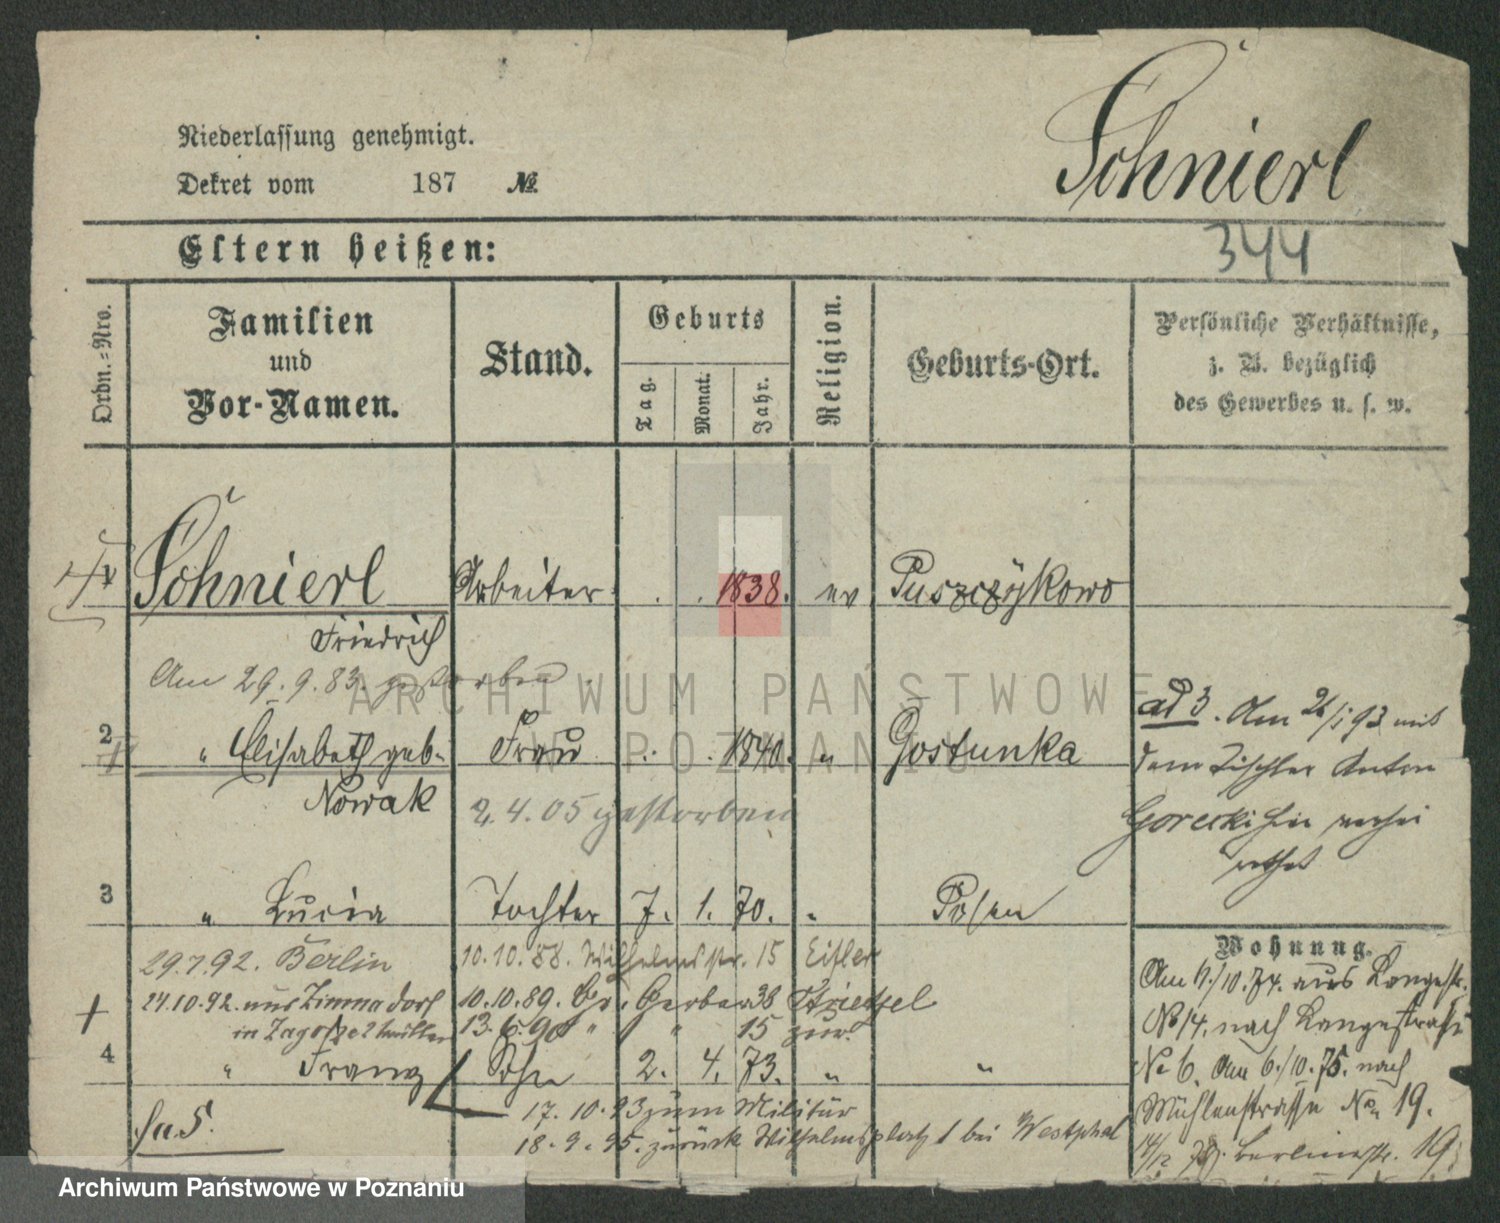 Niederlassung genehmigt.
Dekret vom 187 №
Schnierl
344
Eltern heißen:
Ordn.-Nro.
Familien
und
Vor-Namen.
Stand.
Geburts
Tag.
Monat.
Jahr.
Religion.
Geburts-Ort.
Persönliche Verhältnisse,
z. B. bezüglich
des Gewerbes u. s. w.
Schnierl Arbeiter . . 1838. ev Puszczykowo
Friedrich
Am 29.9.83. gestorben.
2 " Elisabeth geb. Frau . . 1840. " Gostunka
Nowak
2.4.05 gestorben
ad 3. Am 26/1 93 mit
dem Tischler Anton
Gorecki hier verhei
rathet
3 " Lucia Tochter 7. 1. 70. " Posen
29.7.92. Berlin 10.10.88. Wilhelmsstr. 15 Eitler
24.10.92. aus 10.10.89. Gr. Gerber 38
in 13.6.90 " " 15 zur.
4 " Franz Sohn 2. 4. 73. " "
17.10.93 zum Militär
18.9.95. zurück Wilhelmsplatz 1 bei Westphal
fa.5.
Wohnung.
Am 4./10.74. aus Langestr.
No 14. nach Langestraße
No 6. Am 6./10.75. nach
Mühlenstrasse No 19.
14/12 78. Berlinerstr. 19
ARCHIWUM PAŃSTWOWE
W POZNANIU
Archiwum Państwowe w Poznaniu